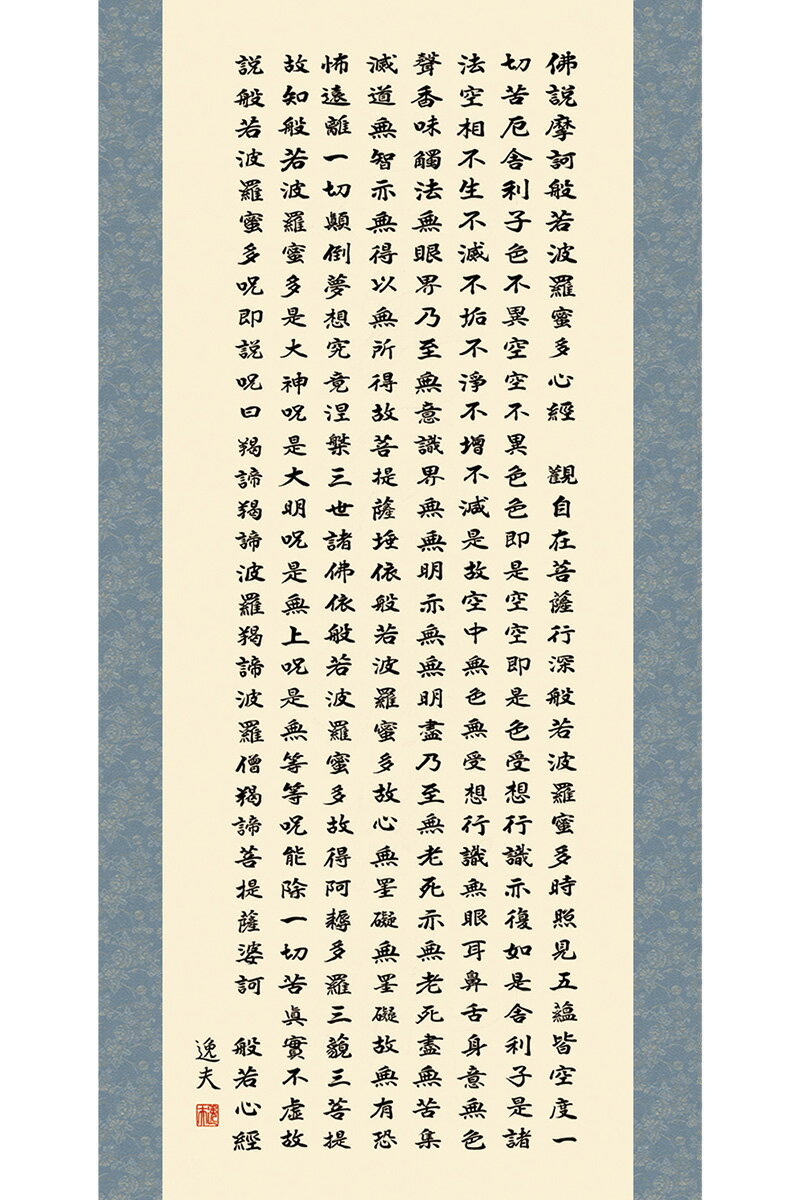 佛説摩訶般若波羅蜜多心經　觀自在菩薩行深般若波羅蜜多時照見五蘊皆空度一
切苦厄舎利子色不異空空不異色色即是空空即是色受想行識亦復如是舎利子是諸
法空相不生不滅不垢不淨不增不減是故空中無色無受想行識無眼耳鼻舌身意無色
聲香味觸法無眼界乃至無意識界無無明亦無無明盡乃至無老死亦無老死盡無苦集
滅道無智亦無得以無所得故菩提薩埵依般若波羅蜜多故心無罣礙無罣礙故無有恐
怖遠離一切顛倒夢想究竟涅槃三世諸佛依般若波羅蜜多故得阿耨多羅三藐三菩提
故知般若波羅蜜多是大神呪是大明呪是無上呪是無等等呪能除一切苦眞實不虛故
説般若波羅蜜多呪即説呪曰羯諦羯諦波羅羯諦波羅僧羯諦菩提薩婆訶　般若心經
逸夫